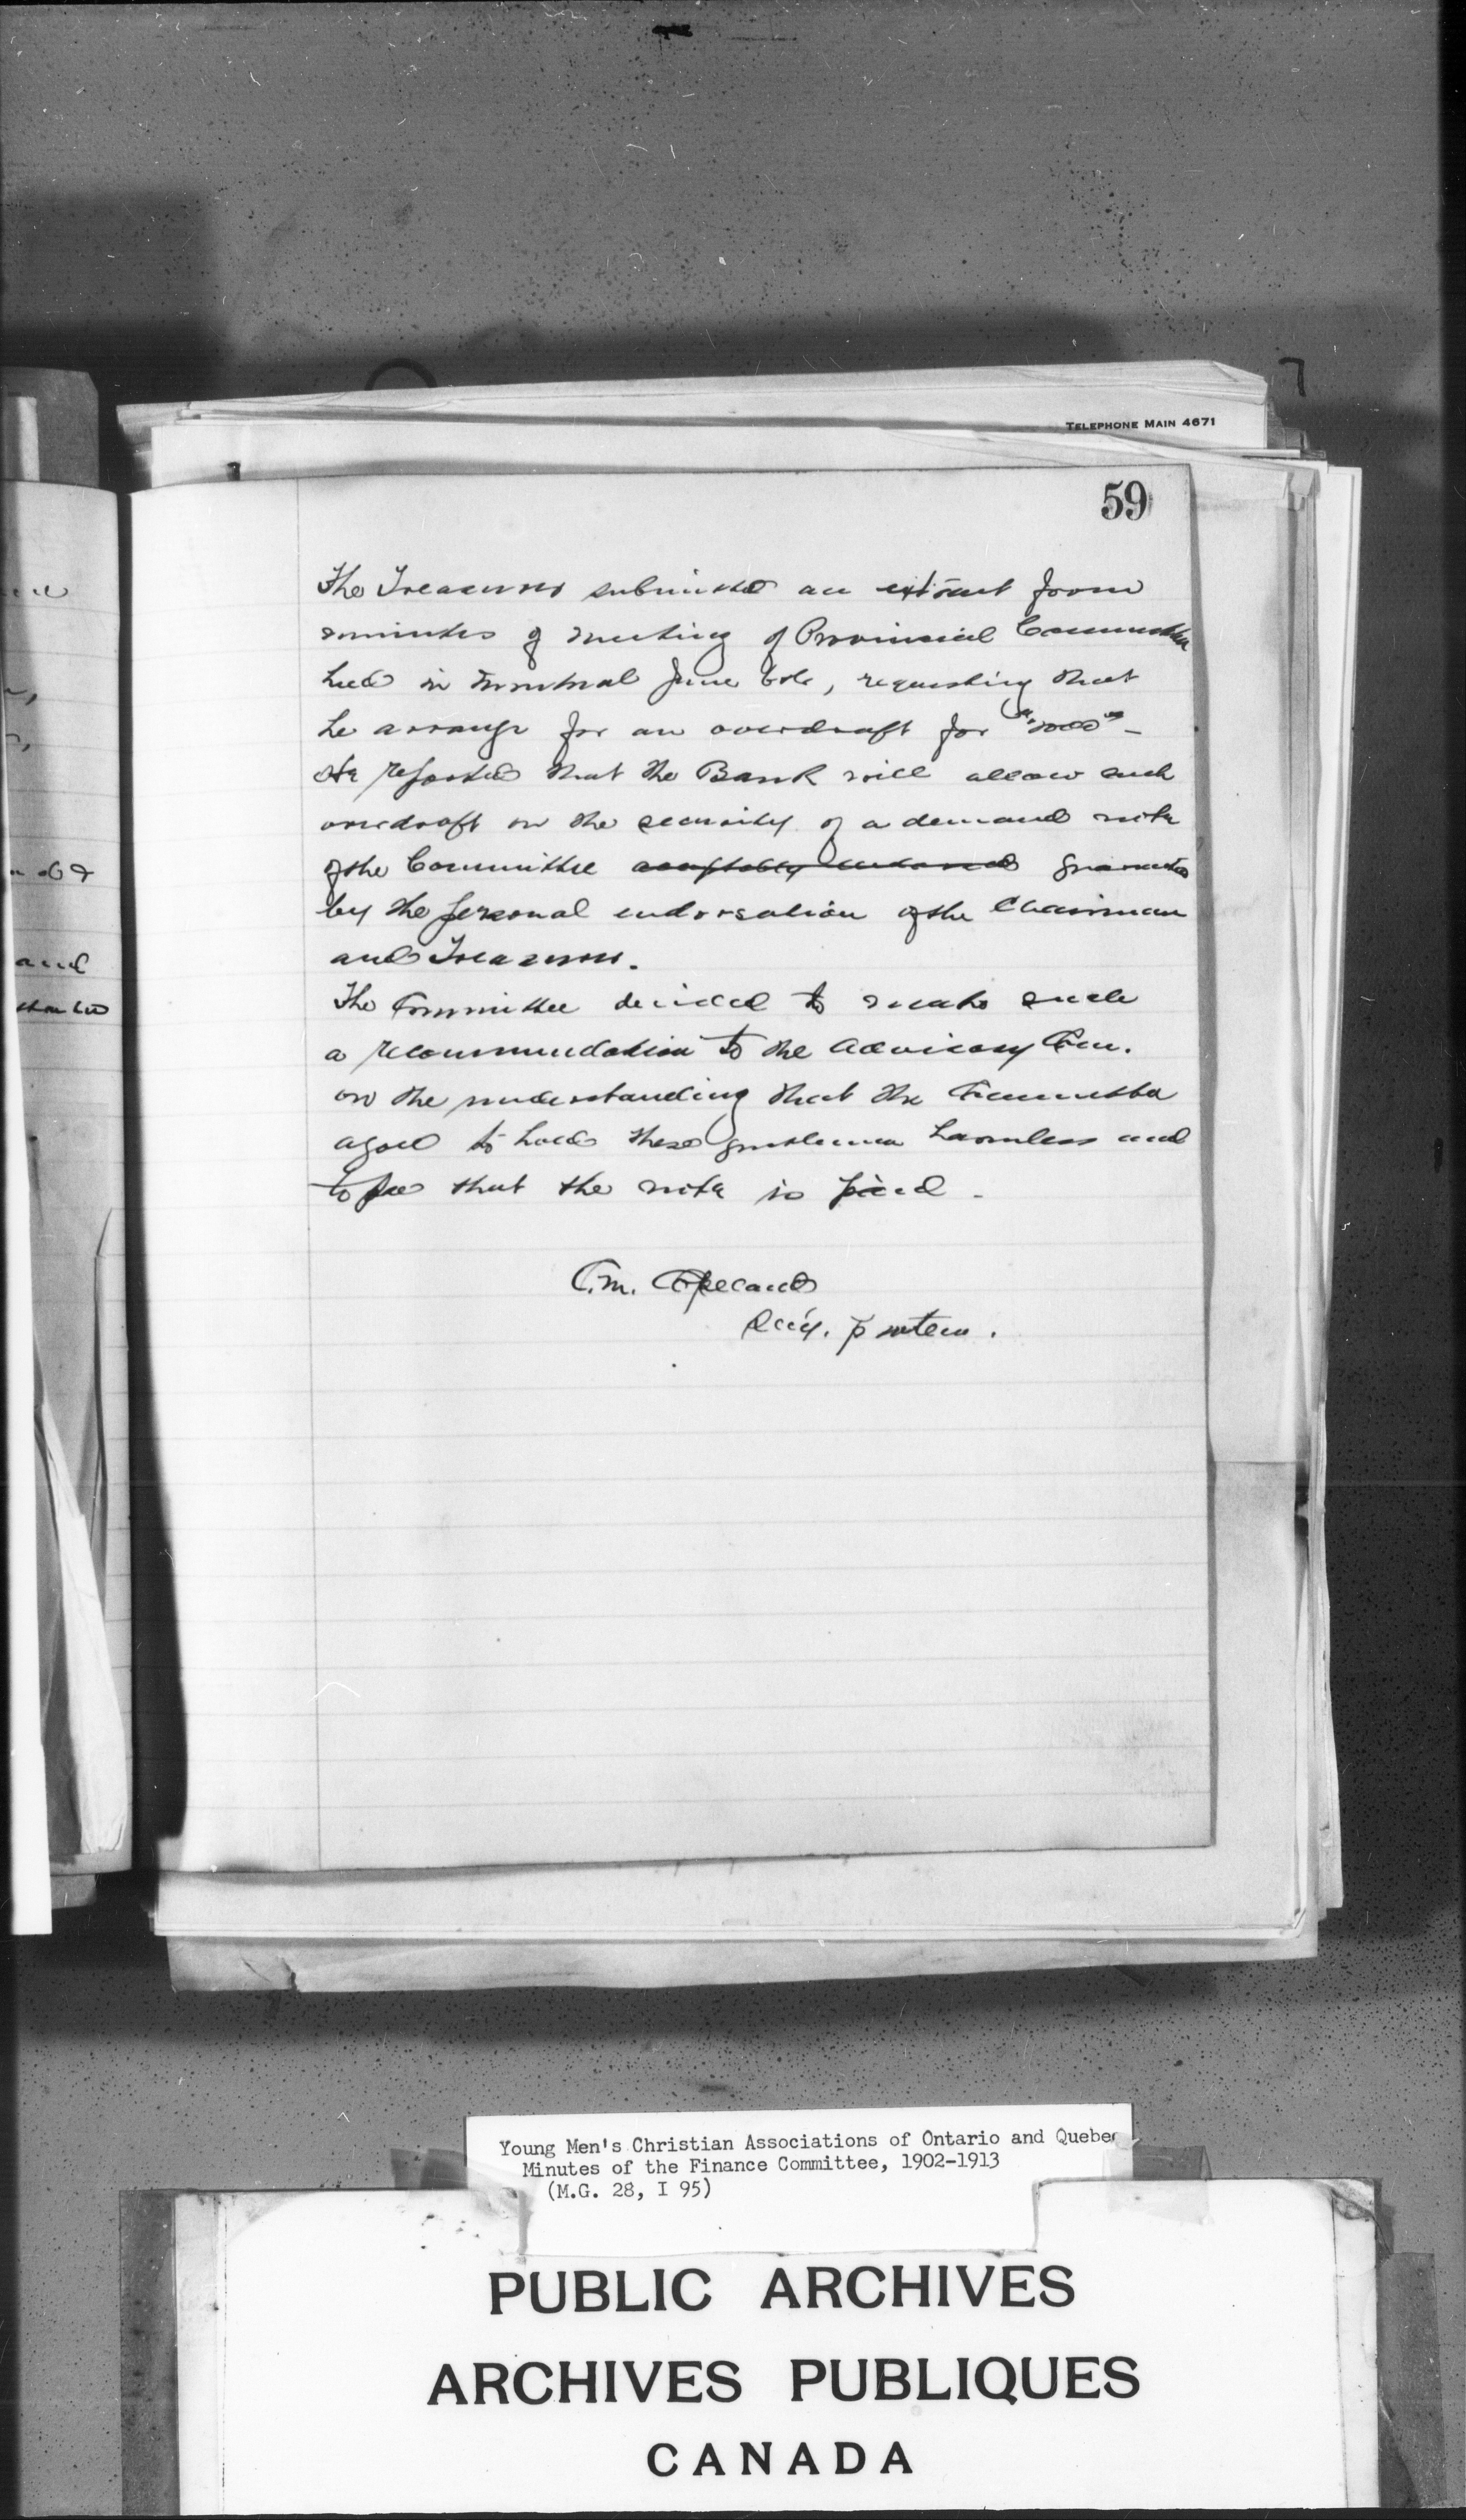 TELEPHONE MAIN 4671
59
The Treasurer submitted an extract from
minutes of meeting of Provincial Committee
held in Montreal June 6th, requesting that
he arrange for an overdraft for
He reported that the Bank will allow such
overdraft on the security of a demand note
of the Committee acceptably endorsed guaranteed
by the personal endorsation of the Chairman
and Treasurer.
The Committee decided to make such
a recommendation to the Advisory Com.
on the understanding that the Committee
agree to hold these gentlemen harmless and
to see that the note is paid.
C.M. Copeland
Sec'y. protem.
and
Young Men's Christian Associations of Ontario and Quebec
Minutes of the Finance Committee, 1902-1913
(M.G. 28, I 95)
PUBLIC ARCHIVES
ARCHIVES PUBLIQUES
CANADA